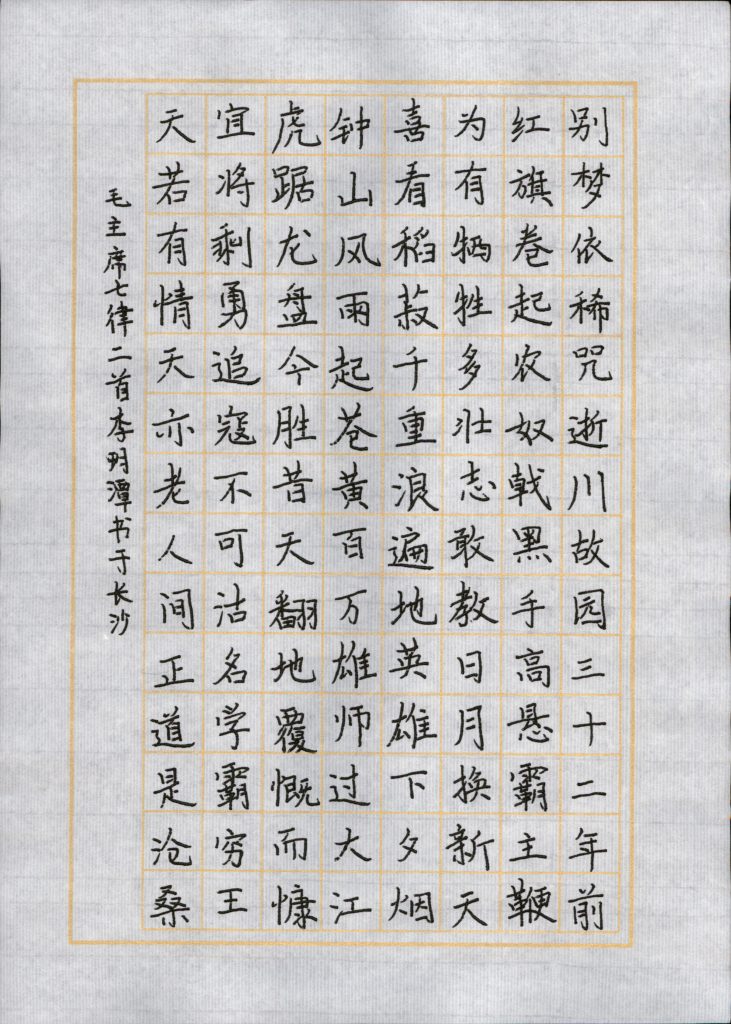 别梦依稀咒逝川故园三十二年前
红旗卷起农奴戟黑手高悬霸主鞭
为有牺牲多壮志敢教日月换新天
喜看稻菽千重浪遍地英雄下夕烟
钟山风雨起苍黄百万雄师过大江
虎踞龙盘今胜昔天翻地覆慨而慷
宜将剩勇追寇不可沽名学霸穷王
天若有情天亦老人间正道是沧桑
毛主席七律二首李明潭书于长沙